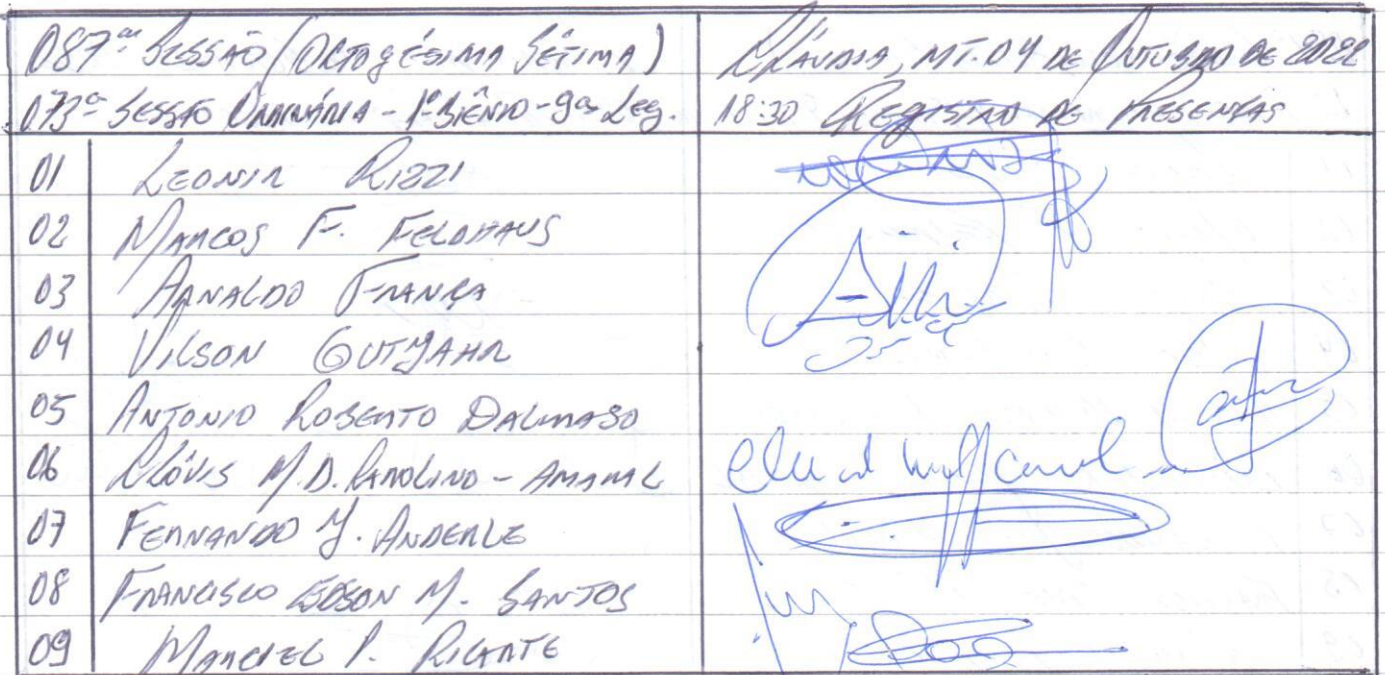 087ª SESSÃO (OCTOGÉSIMA SÉTIMA)
073ª SESSÃO ORDINÁRIA - 1º BIÊNIO - 9ª Leg.
CLÁUDIA, MT. 04 DE OUTUBRO DE 2022
18:30 REGISTRO DE PRESENÇAS
01 LEONIR RIZZI
02 MARCOS F. FELDHAUS
03 ARNALDO FRANÇA
04 VILSON GUTJAHR
05 ANTONIO ROBERTO DALMASO
06 CLÓVIS M.D. CAROLINO - AMARAL
07 FERNANDO J. ANDERLE
08 FRANCISCO EDSON M. SANTOS
09 MARCIEL P.